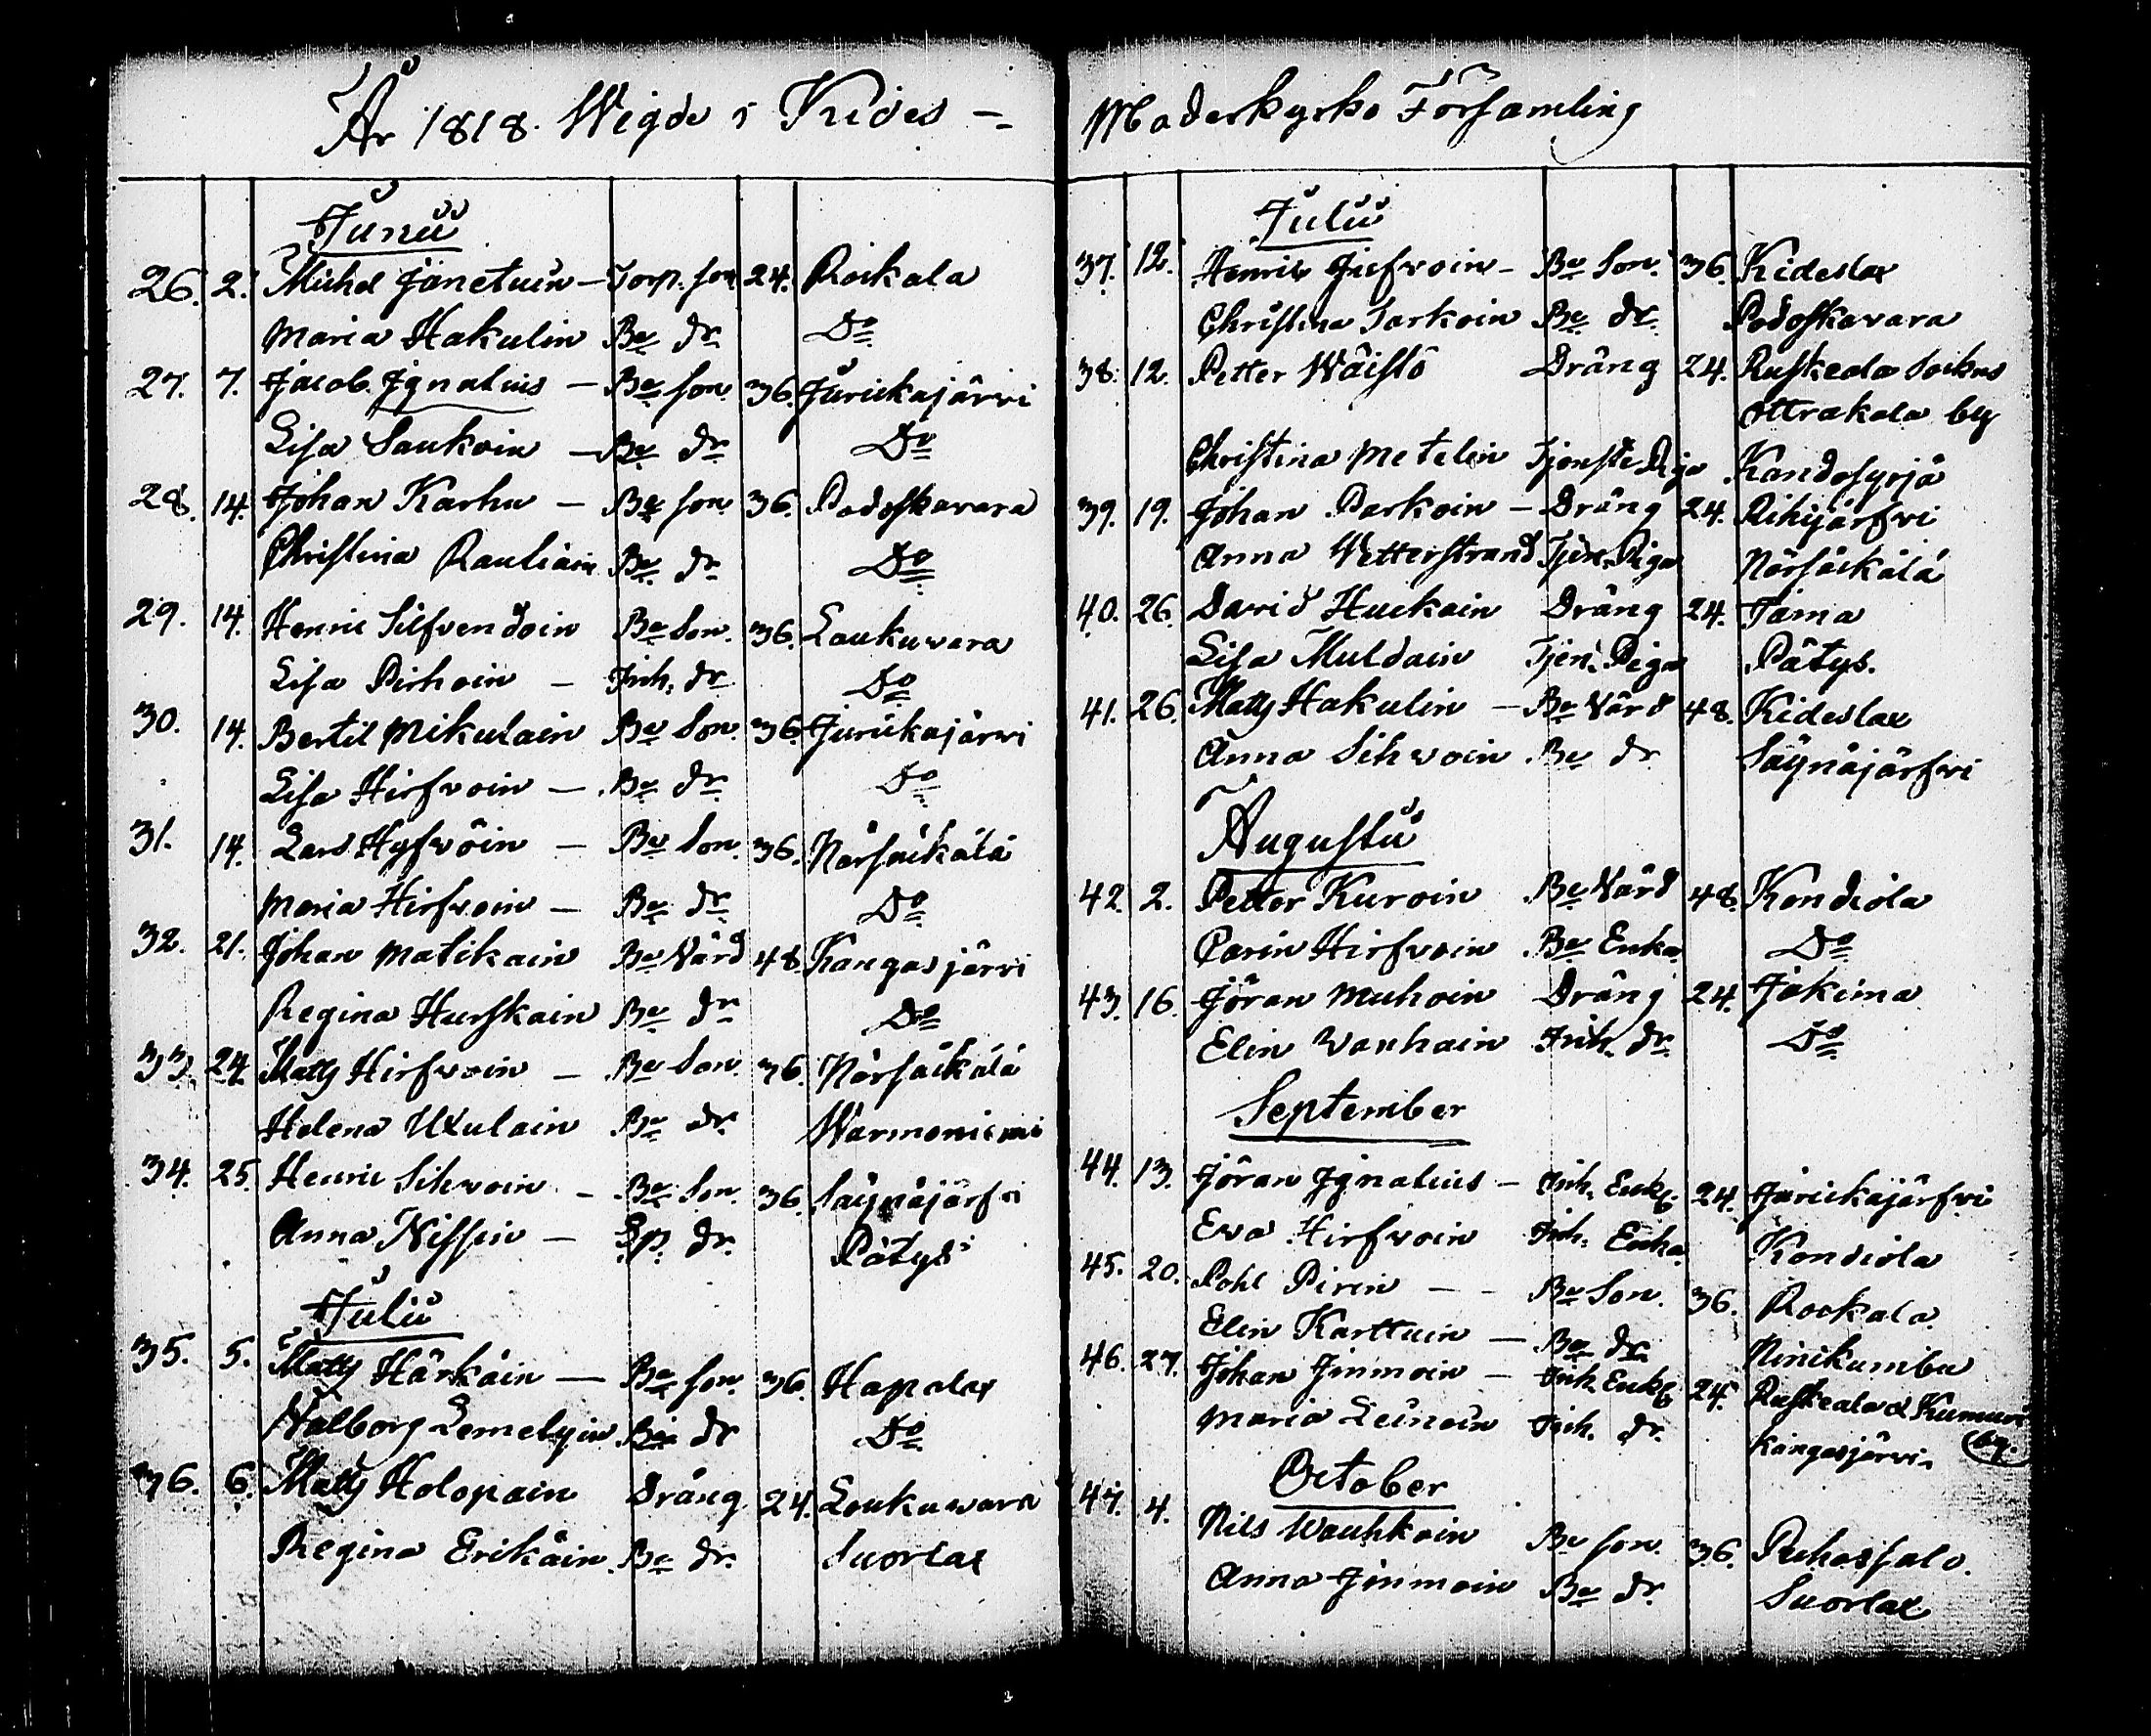 År 1818. Wigde i Kides -
Junii
26. 2. Michel Jänetuin - Torp. son 24. Roikala
Maria Hakulin Be dr Do
27. 7. Jacob Ignatius - Be son 36. Juriickajärvi
Lisa Saukoin - Be dr Do
28. 14. Johan Karhu - Be son 36. Podoskavara
Christina Rautiain Be dr Do
29. 14. Henric Silfvendoin Be Son. 36. Loukuvara
Lisa Pirhoin - Inh. dr Do
30. 14. Bertil Mikulain Be Son. 36. Juriickajärvi
Lisa Hirfvoin - Be dr Do
31. 14. Lars Hyfvöin - Be Son. 36. Närsäckälä
Maria Hirfvoin - Be dr Do
32. 21. Johan Matikain Be Värd 48. Kangasjärvi
Regina Hurskain Be dr Do
33. 24. Matts Hirfvoin - Be Son. 36. Närsäckälä
Helena Uxulain Be dr. Warmoniemi
34. 25. Henric Sihvoin - Be Son. 36. Säynäjärfvi
Anna Nissin - Sp. dr. Pätys
Julii
35. 5. Matts Härkäin - Be son. 36. Hapalax
Walborg Lemelyin Be dr Do
36. 6. Matts Holopain Dräng 24. Loukuwara
Regina Erikäin Be dr. Suorlax
Moderkyrko Församling
Julii
37. 12. Henric Hirfvoin - Be Son. 36. Kideslax
Christina Tarkoin Be dr. Podoskavara
38. 12. Petter Wäistö Dräng 24. Ruskeala Sokns
Ottrakala by
Christina Metelin Tjenste Piga Kandosyrjä
39. 19. Johan Parkoin - Dräng 24. Rihijärfvi
Anna Wetterstrand Tjen. Piga Närsäckälä
40. 26. David Huckain Dräng 24. Jama
Lisa Muldain Tjen. Piga Pätys.
41. 26. Matts Hakulin - Be Värd 48. Kideslax
Anna Sihvoin Be dr Säynäjärfvi
Augusti
42. 2. Petter Kuroin Be Värd 48. Kondiola
Carin Hirfvoin Be Enka Do
43. 16. Jöran Muhoin Dräng 24. Jakima
Elin Vanhain Inh. dr. Do
September
44. 13. Jöran Ignatius - Inh. Enkl. 24. Juriickajärfvi
Ewa Hirfvoin Inh. Enka Kondiola
45. 20. Pohl Pirin - - Be Son. 36. Rookala
Elin Karttuin - Be dr. Ninikumbu
46. 27. Johan Jinmoin - Inh. Enkl. 24. Ruskeala & Kumuri
by.
Maria Leinoin Inh. dr. Kangasjärvi.
October
47. 4. Nils Wauhkoin Be son. 36. Puhossalo.
Anna Jinmoin Be dr. Suorlax